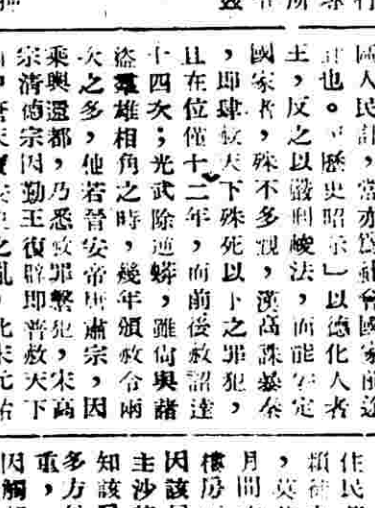 國人民計,當亦為社會國家前途
計也。「歷史昭示」以德化人者
主,反之以嚴刑峻法,而能安定
國家者,殊不多覯,漢高誅暴秦
,即肆赦天下殊死以下之罪犯,
且在位僅十二年,而前後赦詔達
十四次;光武除逆蟒,雖尚與諸
盜羣雄相角之時,幾年頒赦令兩
次之多,他若晉安帝唐肅宗,因
乘輿還都,乃悉赦罪繫犯,宋高
宗清德宗因勤王復辟即普赦天下
住民
,莫
月間
樓房
因該
主沙
知該
多方
重,
因觸